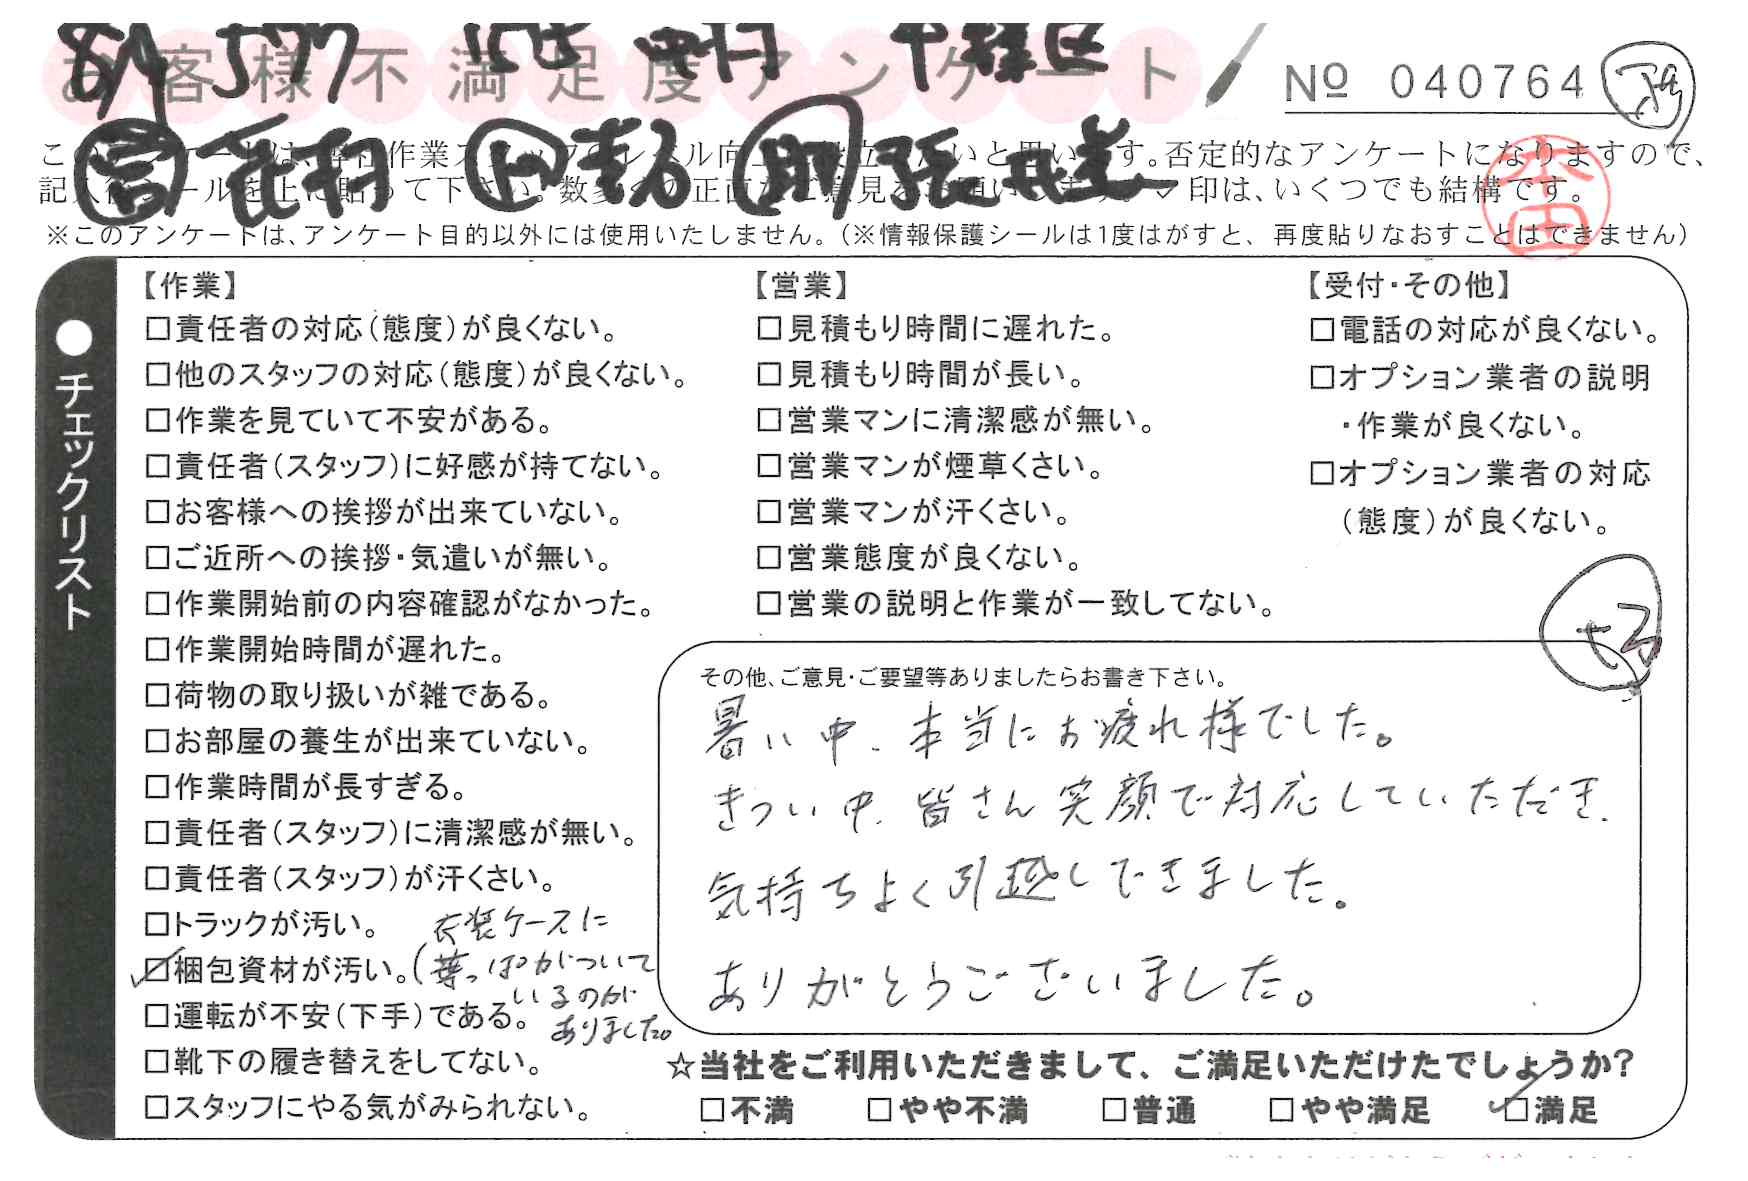 お客様不満足度アンケート
№ 040764
このアンケートは、弊社作業スタッフのレベル向上に役立てたいと思います。否定的なアンケートになりますので、
記入後シールを上に貼って下さい。数多くの正直なご意見をお願いします。✓印は、いくつでも結構です。
※このアンケートは、アンケート目的以外には使用いたしません。(※情報保護シールは1度はがすと、再度貼りなおすことはできません)
●チェックリスト
【作業】
□責任者の対応(態度)が良くない。
□他のスタッフの対応(態度)が良くない。
□作業を見ていて不安がある。
□責任者(スタッフ)に好感が持てない。
□お客様への挨拶が出来ていない。
□ご近所への挨拶・気遣いが無い。
□作業開始前の内容確認がなかった。
□作業開始時間が遅れた。
□荷物の取り扱いが雑である。
□お部屋の養生が出来ていない。
□作業時間が長すぎる。
□責任者(スタッフ)に清潔感が無い。
□責任者(スタッフ)が汗くさい。
□トラックが汚い。
☑梱包資材が汚い。
衣装ケースに
(葉っぱがついて
いるのが
ありました。
□運転が不安(下手)である。
□靴下の履き替えをしてない。
□スタッフにやる気がみられない。
【営業】
□見積もり時間に遅れた。
□見積もり時間が長い。
□営業マンに清潔感が無い。
□営業マンが煙草くさい。
□営業マンが汗くさい。
□営業態度が良くない。
□営業の説明と作業が一致してない。
【受付・その他】
□電話の対応が良くない。
□オプション業者の説明
・作業が良くない。
□オプション業者の対応
(態度)が良くない。
その他、ご意見・ご要望等ありましたらお書き下さい。
暑い中、本当にお疲れ様でした。
きつい中、皆さん笑顔で対応していただき、
気持ちよく引越しできました。
ありがとうございました。
☆当社をご利用いただきまして、ご満足いただけたでしょうか?
□不満 □やや不満 □普通 □やや満足 ☑満足